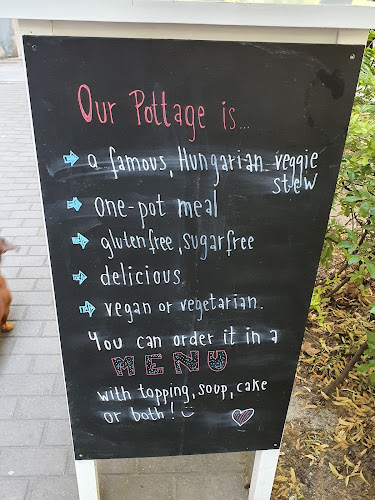 Our Pottage is...
a famous, Hungarian veggie
stew
one-pot meal
glutenfree, sugarfree
delicious
vegan or vegetarian.
You can order it in a
MENU
with topping, soup, cake
or both!